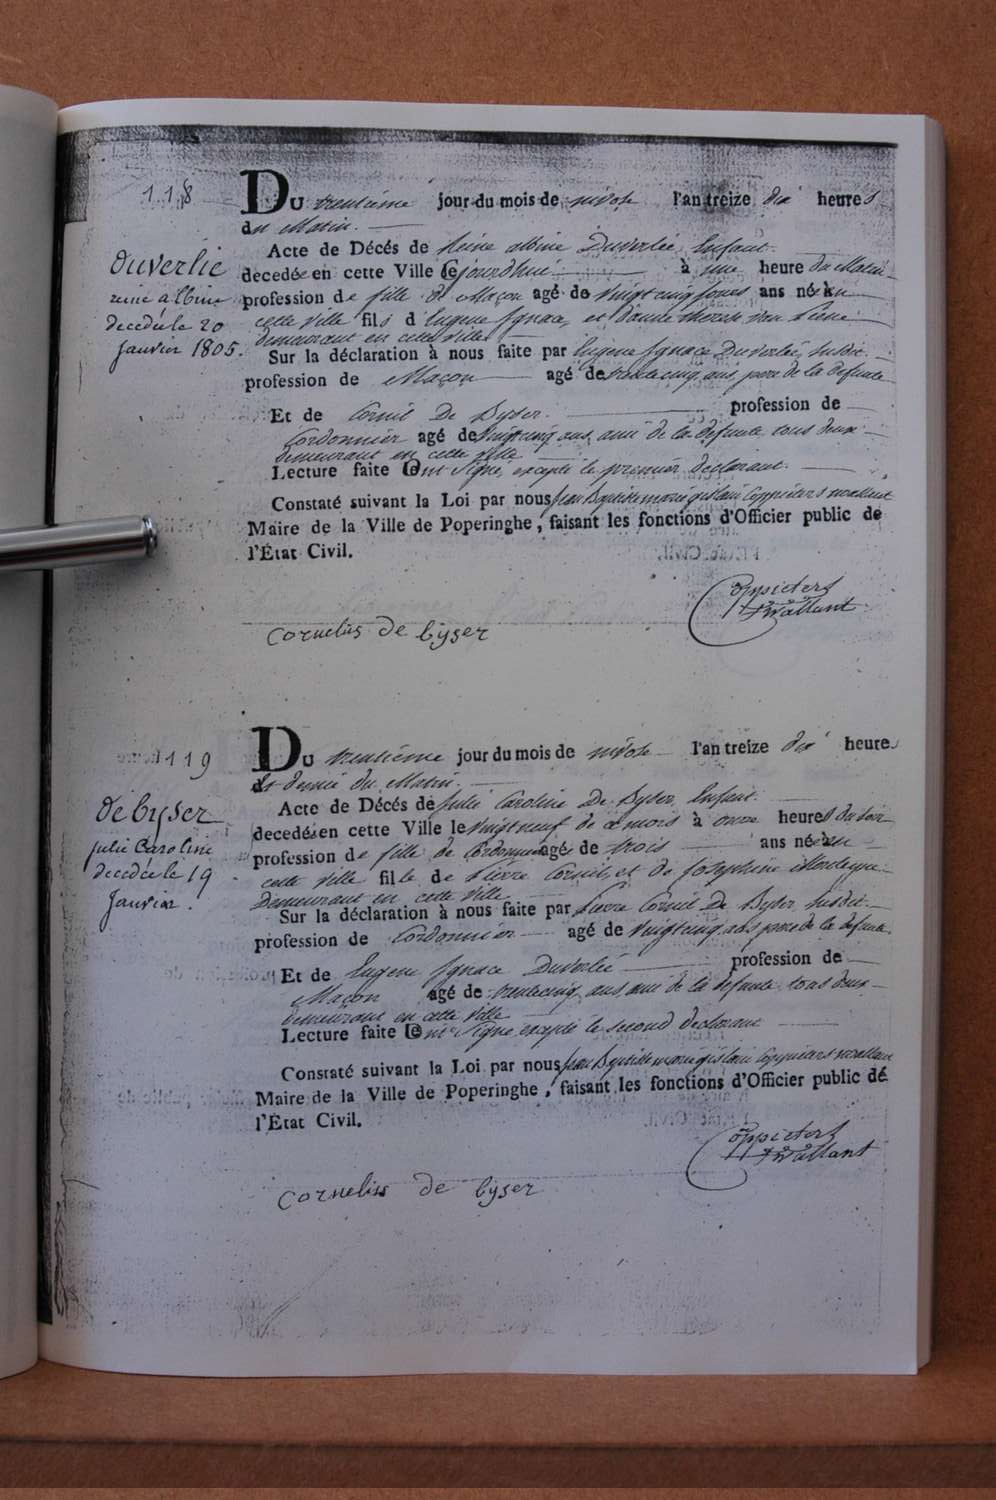 118
Duverlie
reine albine
decedée le 20
Janvier 1805.
Du trentième jour du mois de nivôse l'an treize dix heures
du Matin.
Acte de Décés de Reine albine Duverlie, Enfant
decedée en cette Ville Ce jourdhui à une heure du Matin
profession de fille de Maçon agé de vingt cinq jours ans né en
cette ville fils d'Eugene Ignace, et
demeurant en cette ville
Sur la déclaration à nous faite par Eugene Ignace Duverlie, susdit
profession de Maçon agé de trentecinq ans pere de la defunte
Et de Cornil De Byser. profession de
Cordonnier agé de vingtcinq ans, ami de la defunte, tous deux
demeurant en cette ville
Lecture faite Ont Signé, excepté le premier declarant.
Constaté suivant la Loi par nous Jean Baptiste marie gislain Coppieters
Maire de la Ville de Poperinghe, faisant les fonctions d'Officier public de
l'État Civil.
Coppieters
Cornelis de byser
119
de byser
julie Caroline
decedée le 19
Janvier.
Du trentième jour du mois de nivôse l'an treize dix heures
et demie du Matin.
Acte de Décés de Julie Caroline De Byser, Enfant
decedée en cette Ville le vingt neuf de ce mois à onze heures du soir
profession de fille de Cordonnier agé de trois ans né en
cette ville fille de Pierre Cornil, et de Josephine
demeurant en cette ville
Sur la déclaration à nous faite par Pierre Cornil De Byser, susdit
profession de Cordonnier agé de vingtcinq ans pere de la defunte
Et de Eugene Ignace Duverlié profession de
Maçon agé de trentecinq ans ami de la defunte tous deux
demeurant en cette ville
Lecture faite Ont Signé excepté le second declarant
Constaté suivant la Loi par nous Jean Baptiste marie gislain Coppieters
Maire de la Ville de Poperinghe, faisant les fonctions d'Officier public de
l'État Civil.
Coppieters
Cornelis de byser